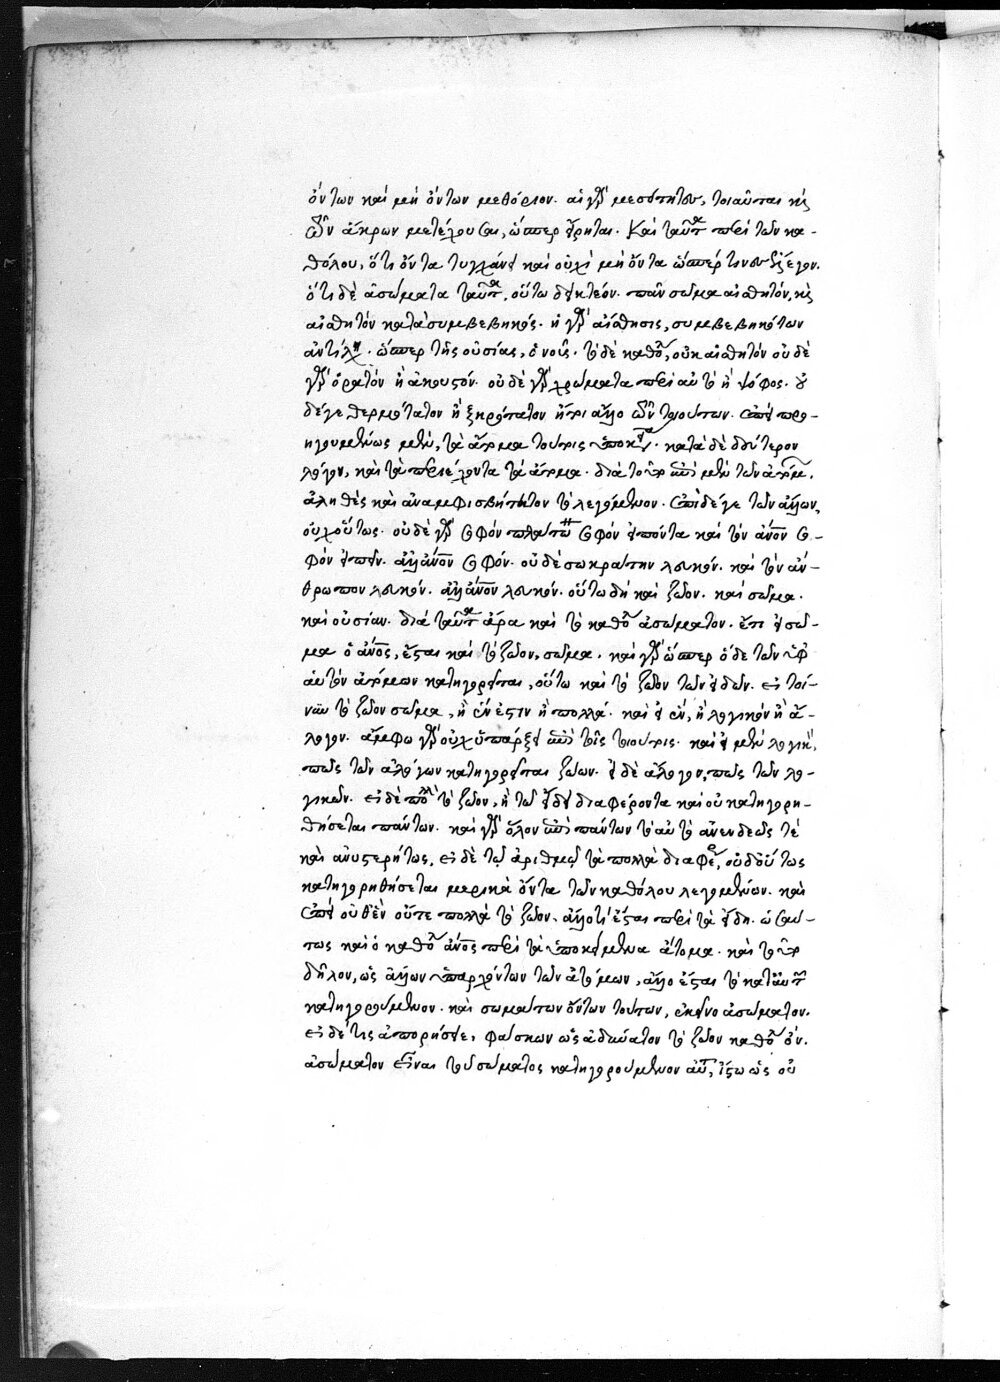 όντων καὶ μὴ ὄντων μεθόριον. αἱ γὰρ μεσότητες, τοιαῦται καὶ
τῶν ἄκρων μετέχουσαι, ὥσπερ εἴρηται. Καὶ ταῦτα περὶ τῶν κα-
θόλου, ὅτι ὄντα τυγχάνει καὶ οὐχὶ μὴ ὄντα ὥσπερ τινες ἔλεγον.
ὅτι δὲ ἀσώματα ταῦτα, οὕτω δεικτέον. πᾶν σῶμα αἰσθητόν, καὶ
αἰσθητὸν κατὰ συμβεβηκός. ἡ γὰρ αἴσθησις, συμβεβηκότων
ἀντιληπτική. ὥσπερ τῆς οὐσίας, ὁ νοῦς. τὸ δὲ καθόλου, οὐκ αἰσθητὸν οὐδὲ
γὰρ ὁρατὸν ἢ ἀκουστόν. οὐδὲ γὰρ χρώματα περὶ αὐτὸ ἢ ψόφος. οὐ
δέ γε θερμότατον ἢ ξηρότατον ἤ τι ἄλλο τῶν τοιούτων. ἐπεὶ προ-
ηγουμένως μὲν, τὰ ἄτομα τούτοις ὑπόκειται. κατὰ δὲ δεύτερον
λόγον, καὶ τὰ περιέχοντα τὰ ἄτομα. διὰ τοῦτο ἐπὶ μὲν τῶν ἀτόμων,
ἀληθὲς καὶ ἀναμφισβήτητον τὸ λεγόμενον. ἐπὶ δέ γε τῶν ἄλλων,
οὐχ οὕτως. οὐδὲ γὰρ σοφὸν πλάτωνα σοφὸν εἰπόντα καὶ τὸν ἄνθρωπον σο-
φὸν εἰπεῖν. ἀλλ' ἄνθρωπον σοφόν. οὐδὲ σωκράτην λευκόν. καὶ τὸν ἄν-
θρωπον λευκόν. ἀλλ' ἄνθρωπον λευκόν. οὕτω δὴ καὶ ζῶον. καὶ σῶμα.
καὶ οὐσίαν. διὰ ταῦτα ἄρα καὶ τὸ καθόλου ἀσώματον. ἔτι εἰ σῶ-
μα ὁ ἄνθρωπος, ἔσται καὶ τὸ ζῶον, σῶμα. καὶ γὰρ ὥσπερ ὅδε τῶν ὑφ'
αὑτὸν ἀτόμων κατηγορεῖται, οὕτω καὶ τὸ ζῶον τῶν εἰδῶν. εἰ τοί-
νυν τὸ ζῶον σῶμα, ἢ ἕν ἐστιν ἢ πολλά. καὶ εἰ ἕν, ἢ λογικὸν ἢ ἄ-
λογον. ἄμφω γὰρ οὐχ ὑπάρξει ἐπὶ τοῖς τοιούτοις. καὶ εἰ μὲν λογικὸν,
πῶς τῶν ἀλόγων κατηγορεῖται ζώων. εἰ δὲ ἄλογον, πῶς τῶν λο-
γικῶν. εἰ δὲ πολλὰ τὸ ζῶον, ἢ τῷ εἴδει διαφέροντα καὶ οὐ κατηγορη-
θήσεται πάντων. καὶ γὰρ ὅλον ἐπὶ πάντων τὸ αὐτὸ ἀνενδεῶς τέ
καὶ ἀνυστερήτως, εἰ δὲ τῷ ἀριθμῷ τὰ πολλὰ διαφέρει, οὐδ' οὕτως
κατηγορηθήσεται μερικὰ ὄντα τῶν καθόλου λεγομένων. καὶ
ἐπεὶ οὐθὲν οὔτε πολλὰ τὸ ζῶον. ἄλλο τί ἔσται περὶ τὰ εἴδη. ὡσαύ-
τως καὶ ὁ καθόλου ἄνθρωπος περὶ τὰ ὑποκείμενα ἄτομα. καὶ τοῦτο
δῆλον, ὡς ἄλλων ὑπαρχόντων τῶν ἀτόμων, ἄλλο ἔσται τὸ κατ' αὐτῶν
κατηγορούμενον. καὶ σωμάτων ὄντων τούτων, ἐκεῖνο ἀσώματον.
εἰ δέ τις ἀπορήσειε, φάσκων ὡς ἀδύνατον τὸ ζῶον καθόλου ὂν.
ἀσώματον εἶναι τοῦ σώματος κατηγορούμενον αὐτοῦ, ἴστω ὡς οὐ